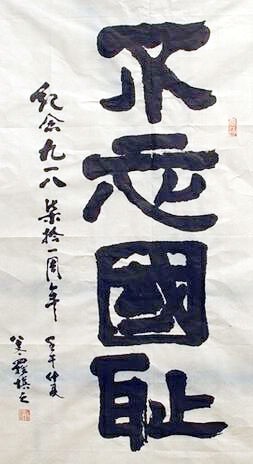 不忘國耻
紀念九一八柒拾一周年 壬午仲夏